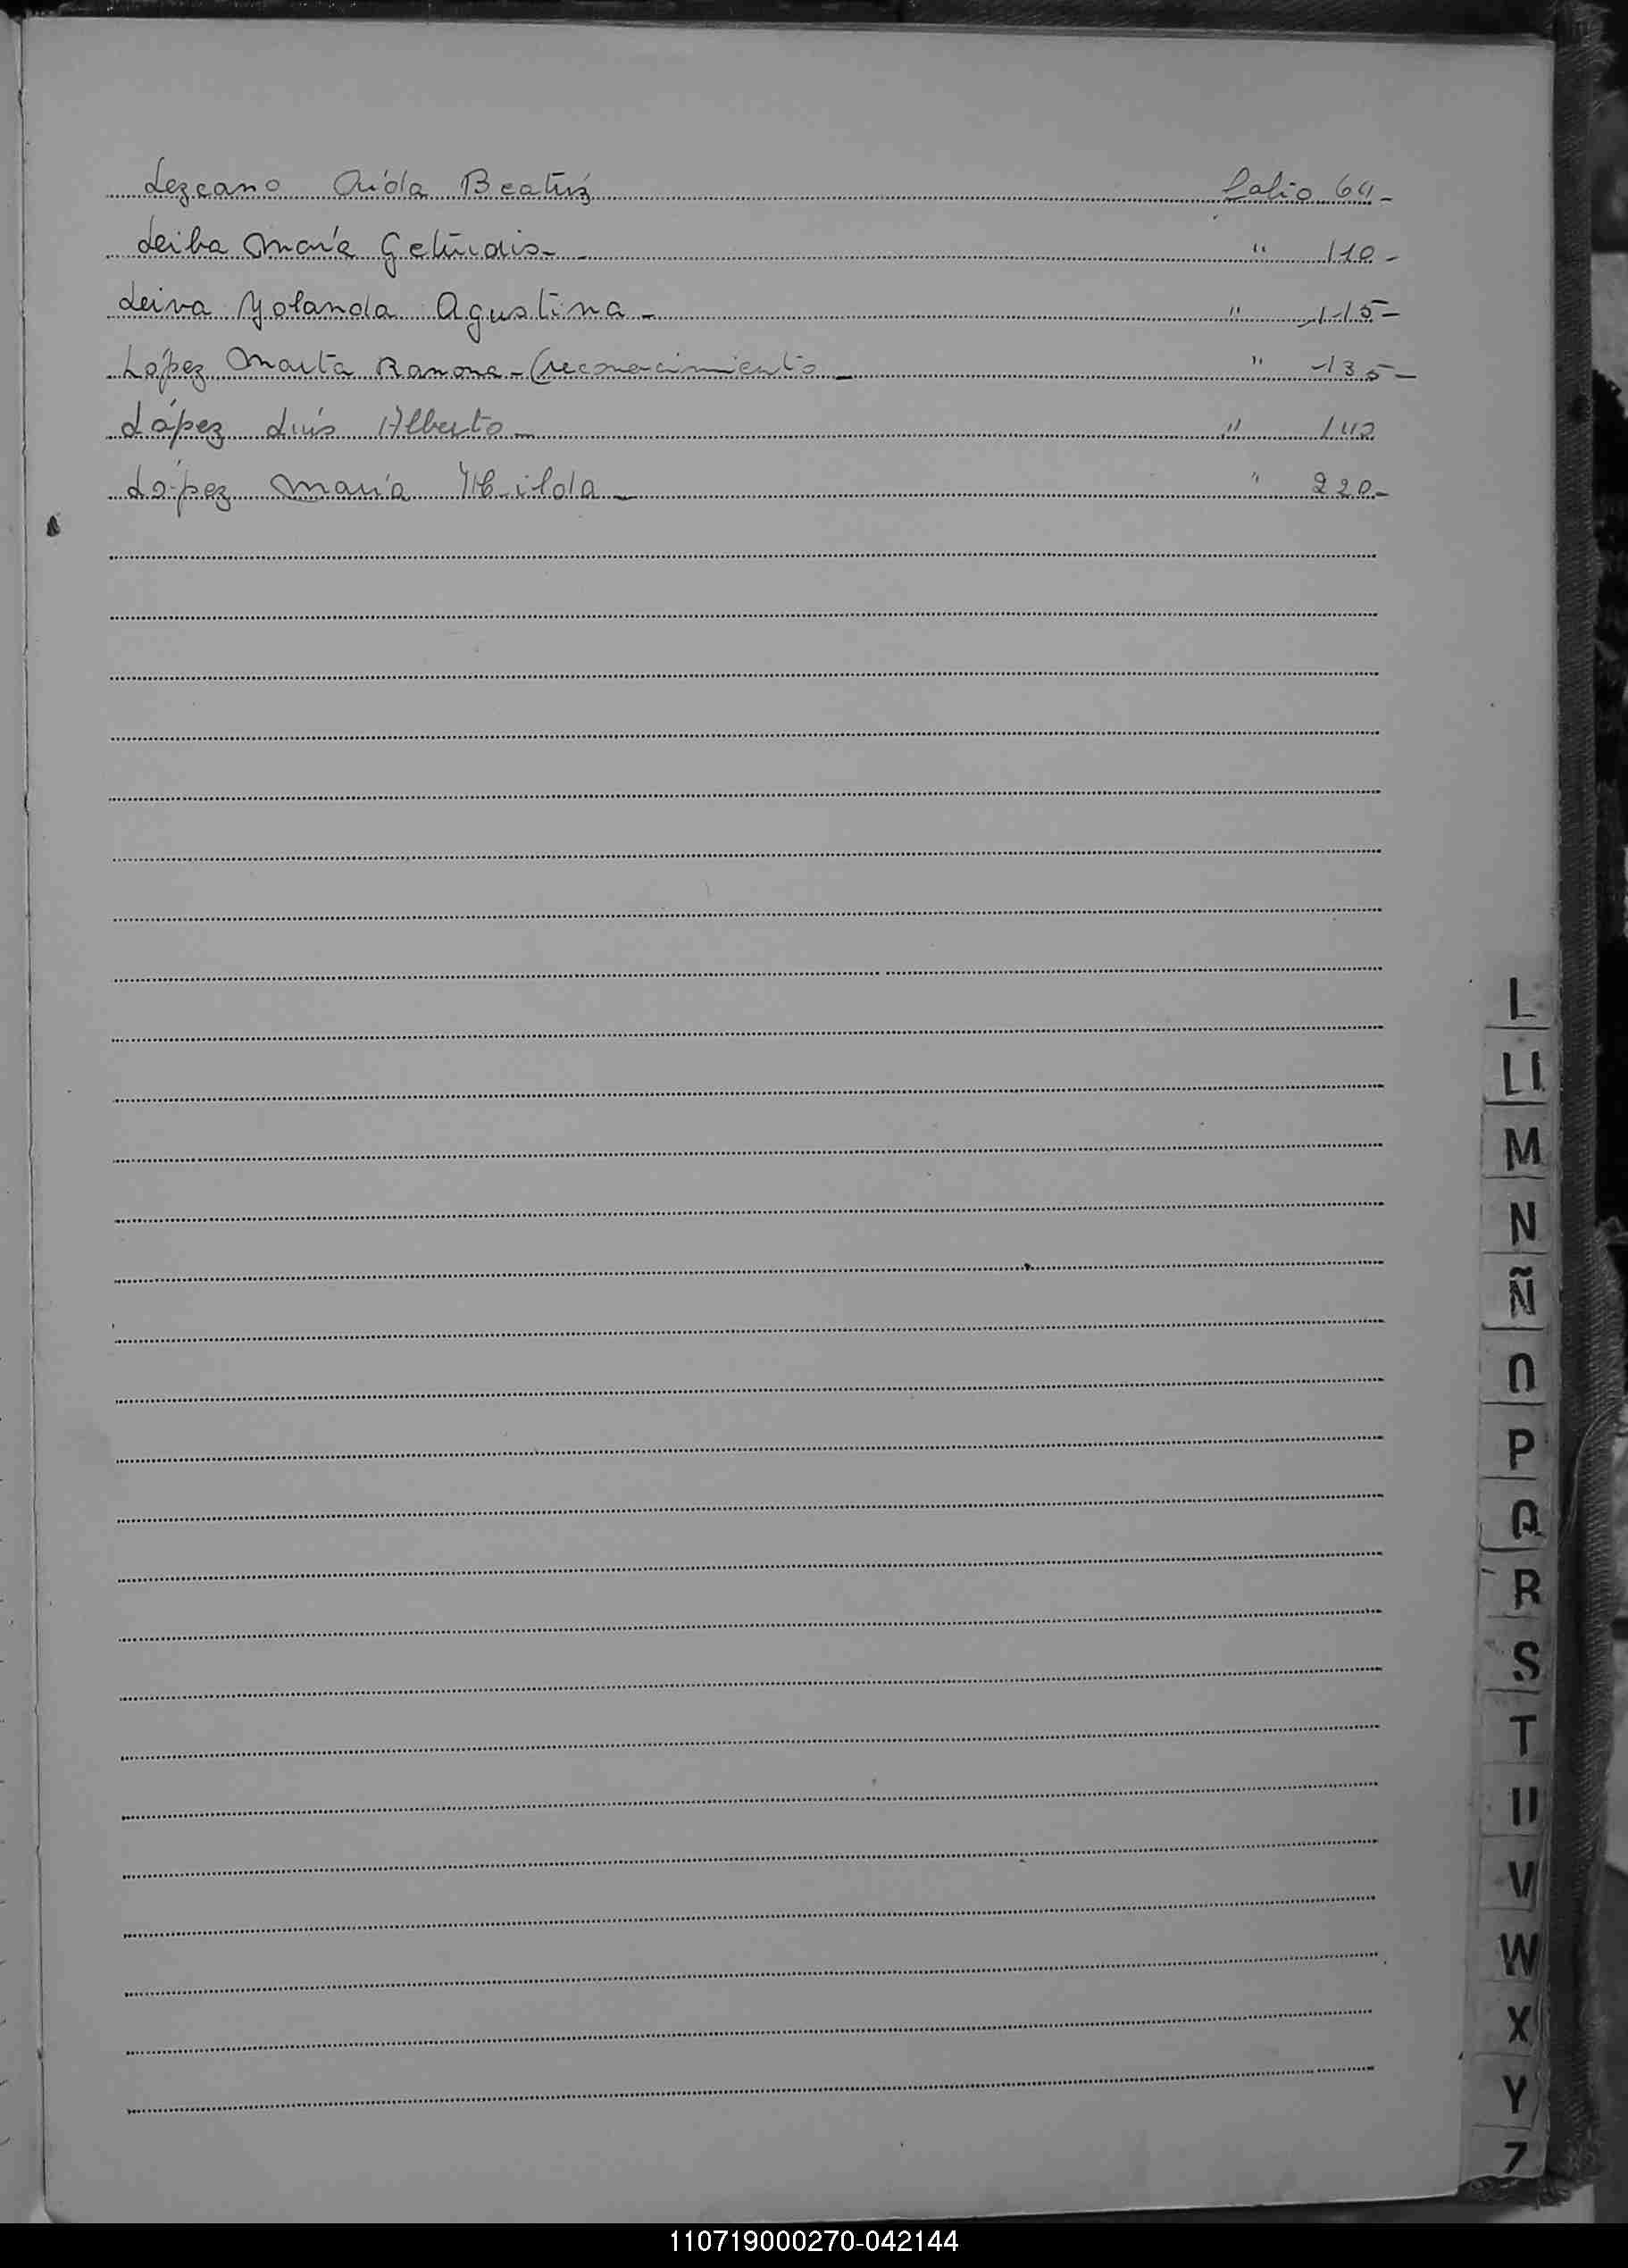 Lezcano Aída Beatríz Folio 64-
Leiba María Getrudis- " 110-
Leiva Yolanda Agustina- " 115-
López Marta Ramona-(reconocimiento- " 135-
López Luís Alberto- " 140
López María Hilda- " 220-
L
Ll
M
N
Ñ
O
P
Q
R
S
T
U
V
W
X
Y
Z
110719000270-042144